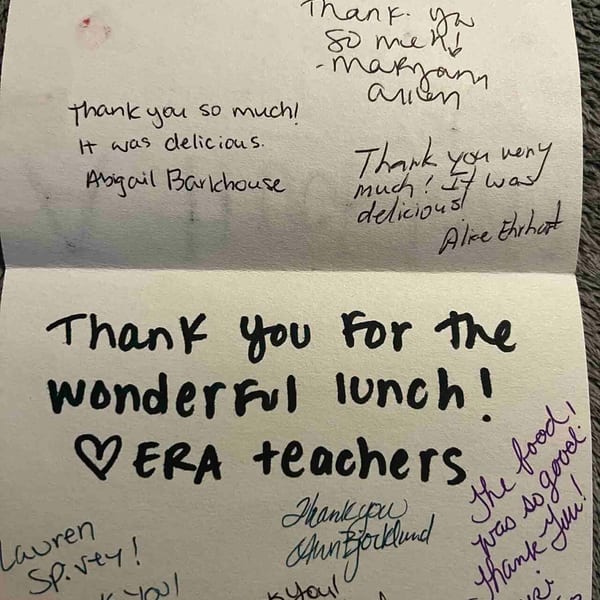 Thank ya
so much!
- Maryann
Allen
Thank you so much!
It was delicious.
Abigail Barkhouse
Thank you very
much! It was
delicious!
Alice Ehrhart
Thank you for the
wonderful lunch!
♡ ERA teachers
The food,
was so good.
Thank You!
Thank you
Ann Bjorklund
Lauren
Spivey!
you!